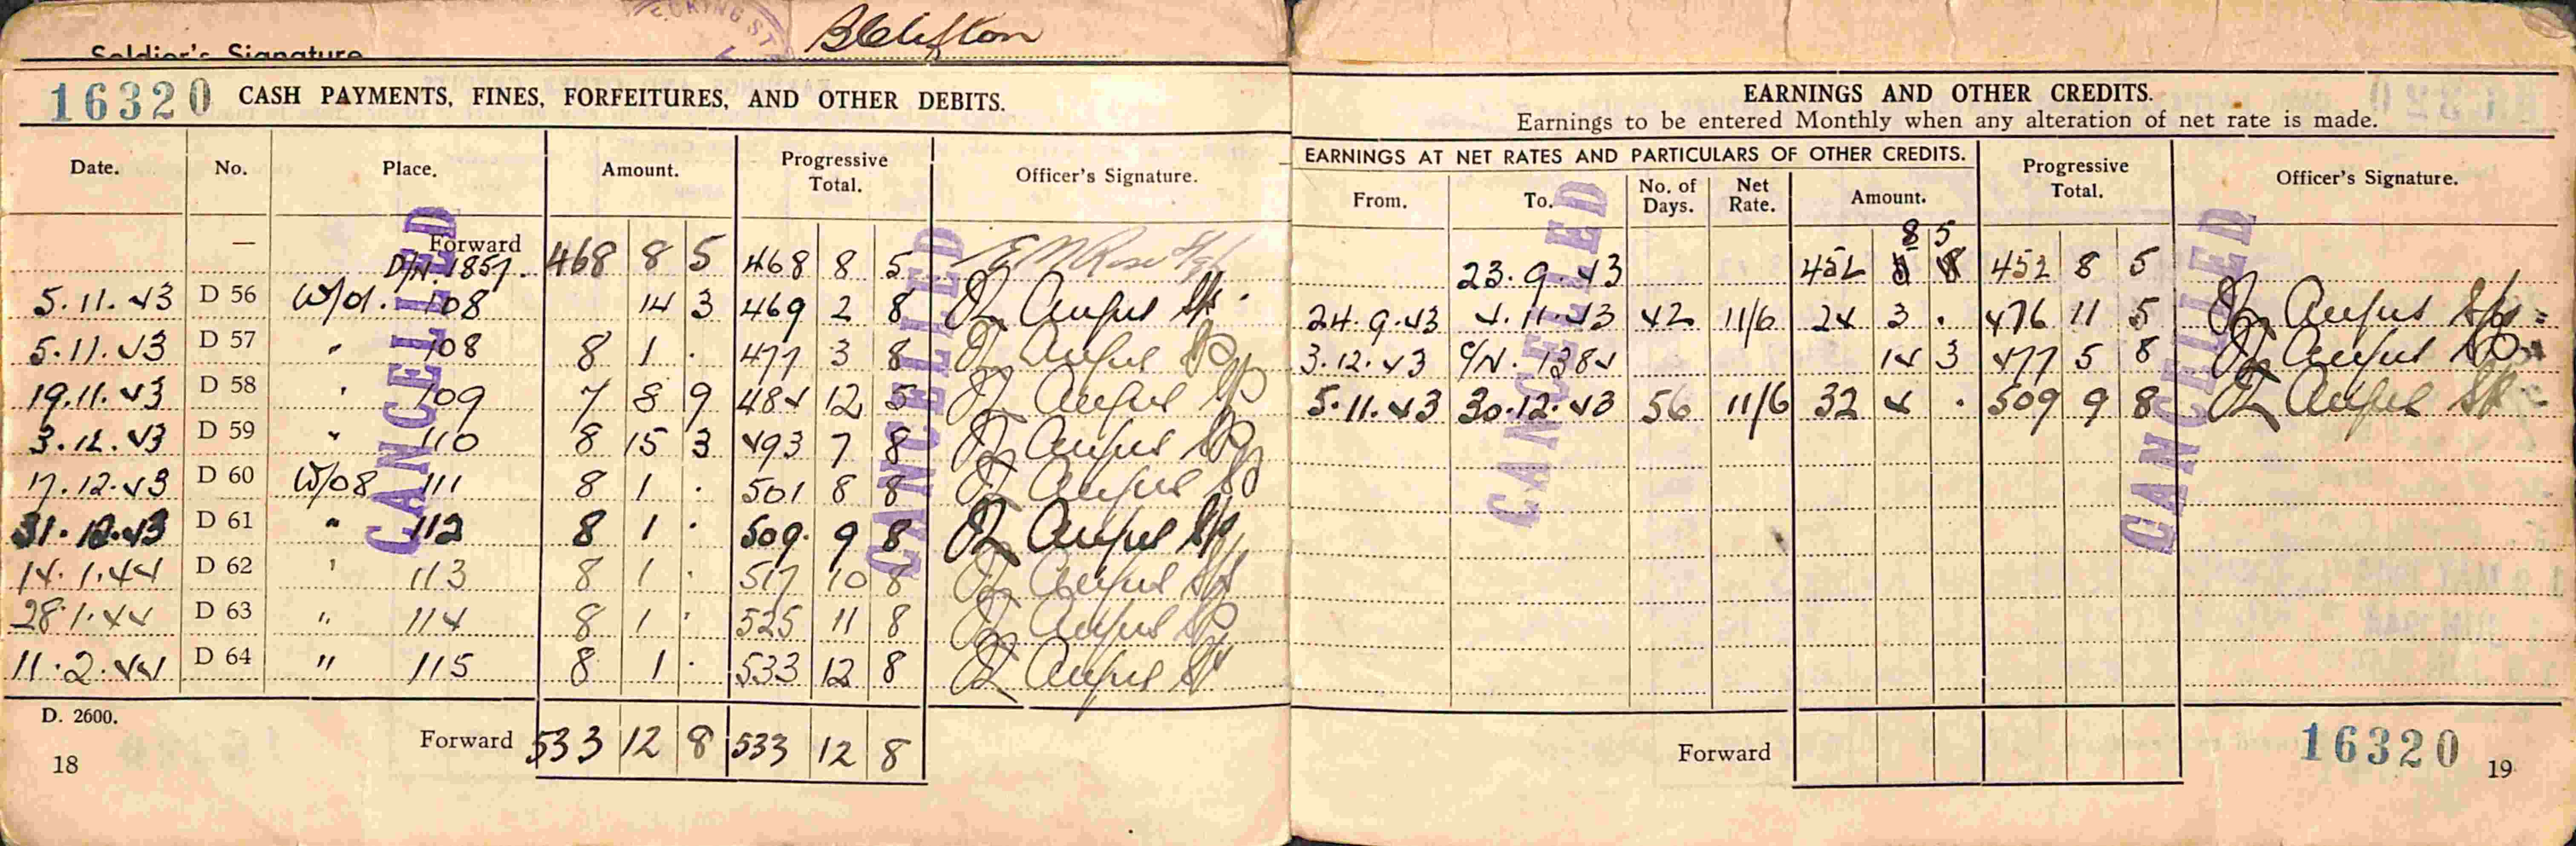 Soldier's Signature BClifton
16320 CASH PAYMENTS, FINES, FORFEITURES, AND OTHER DEBITS.
Date. No. Place. Amount. Progressive Total. Officer's Signature.
— Forward
D/N. 1857. 468 8 5 468 8 5
5.11.43 D 56 W/01. 108 14 3 469 2 8
5.11.43 D 57 " 108 8 1 . 477 3 8
19.11.43 D 58 " 109 7 8 9 484 12 5
3.12.43 D 59 " 110 8 15 3 493 7 8
17.12.43 D 60 W/08 111 8 1 . 501 8 8
31.12.43 D 61 " 112 8 1 . 509. 9 8
14.1.44 D 62 " 113 8 1 . 517 10 8
28.1.44 D 63 " 114 8 1 . 525 11 8
11.2.44 D 64 " 115 8 1 . 533 12 8
CANCELLED
CANCELLED
D. 2600.
Forward 533 12 8 533 12 8
18
EARNINGS AND OTHER CREDITS.
Earnings to be entered Monthly when any alteration of net rate is made.
EARNINGS AT NET RATES AND PARTICULARS OF OTHER CREDITS. Progressive Total. Officer's Signature.
From. To. No. of Days. Net Rate. Amount.
8 5
23.9.43 452 452 8 5
24.9.43 4.11.43 42 11/6 24 3 . 476 11 5
3.12.43 C/N. 1384 14 3 477 5 8
5.11.43 30.12.43 56 11/6 32 4 . 509 9 8
CANCELLED
CANCELLED
Forward
16320
19